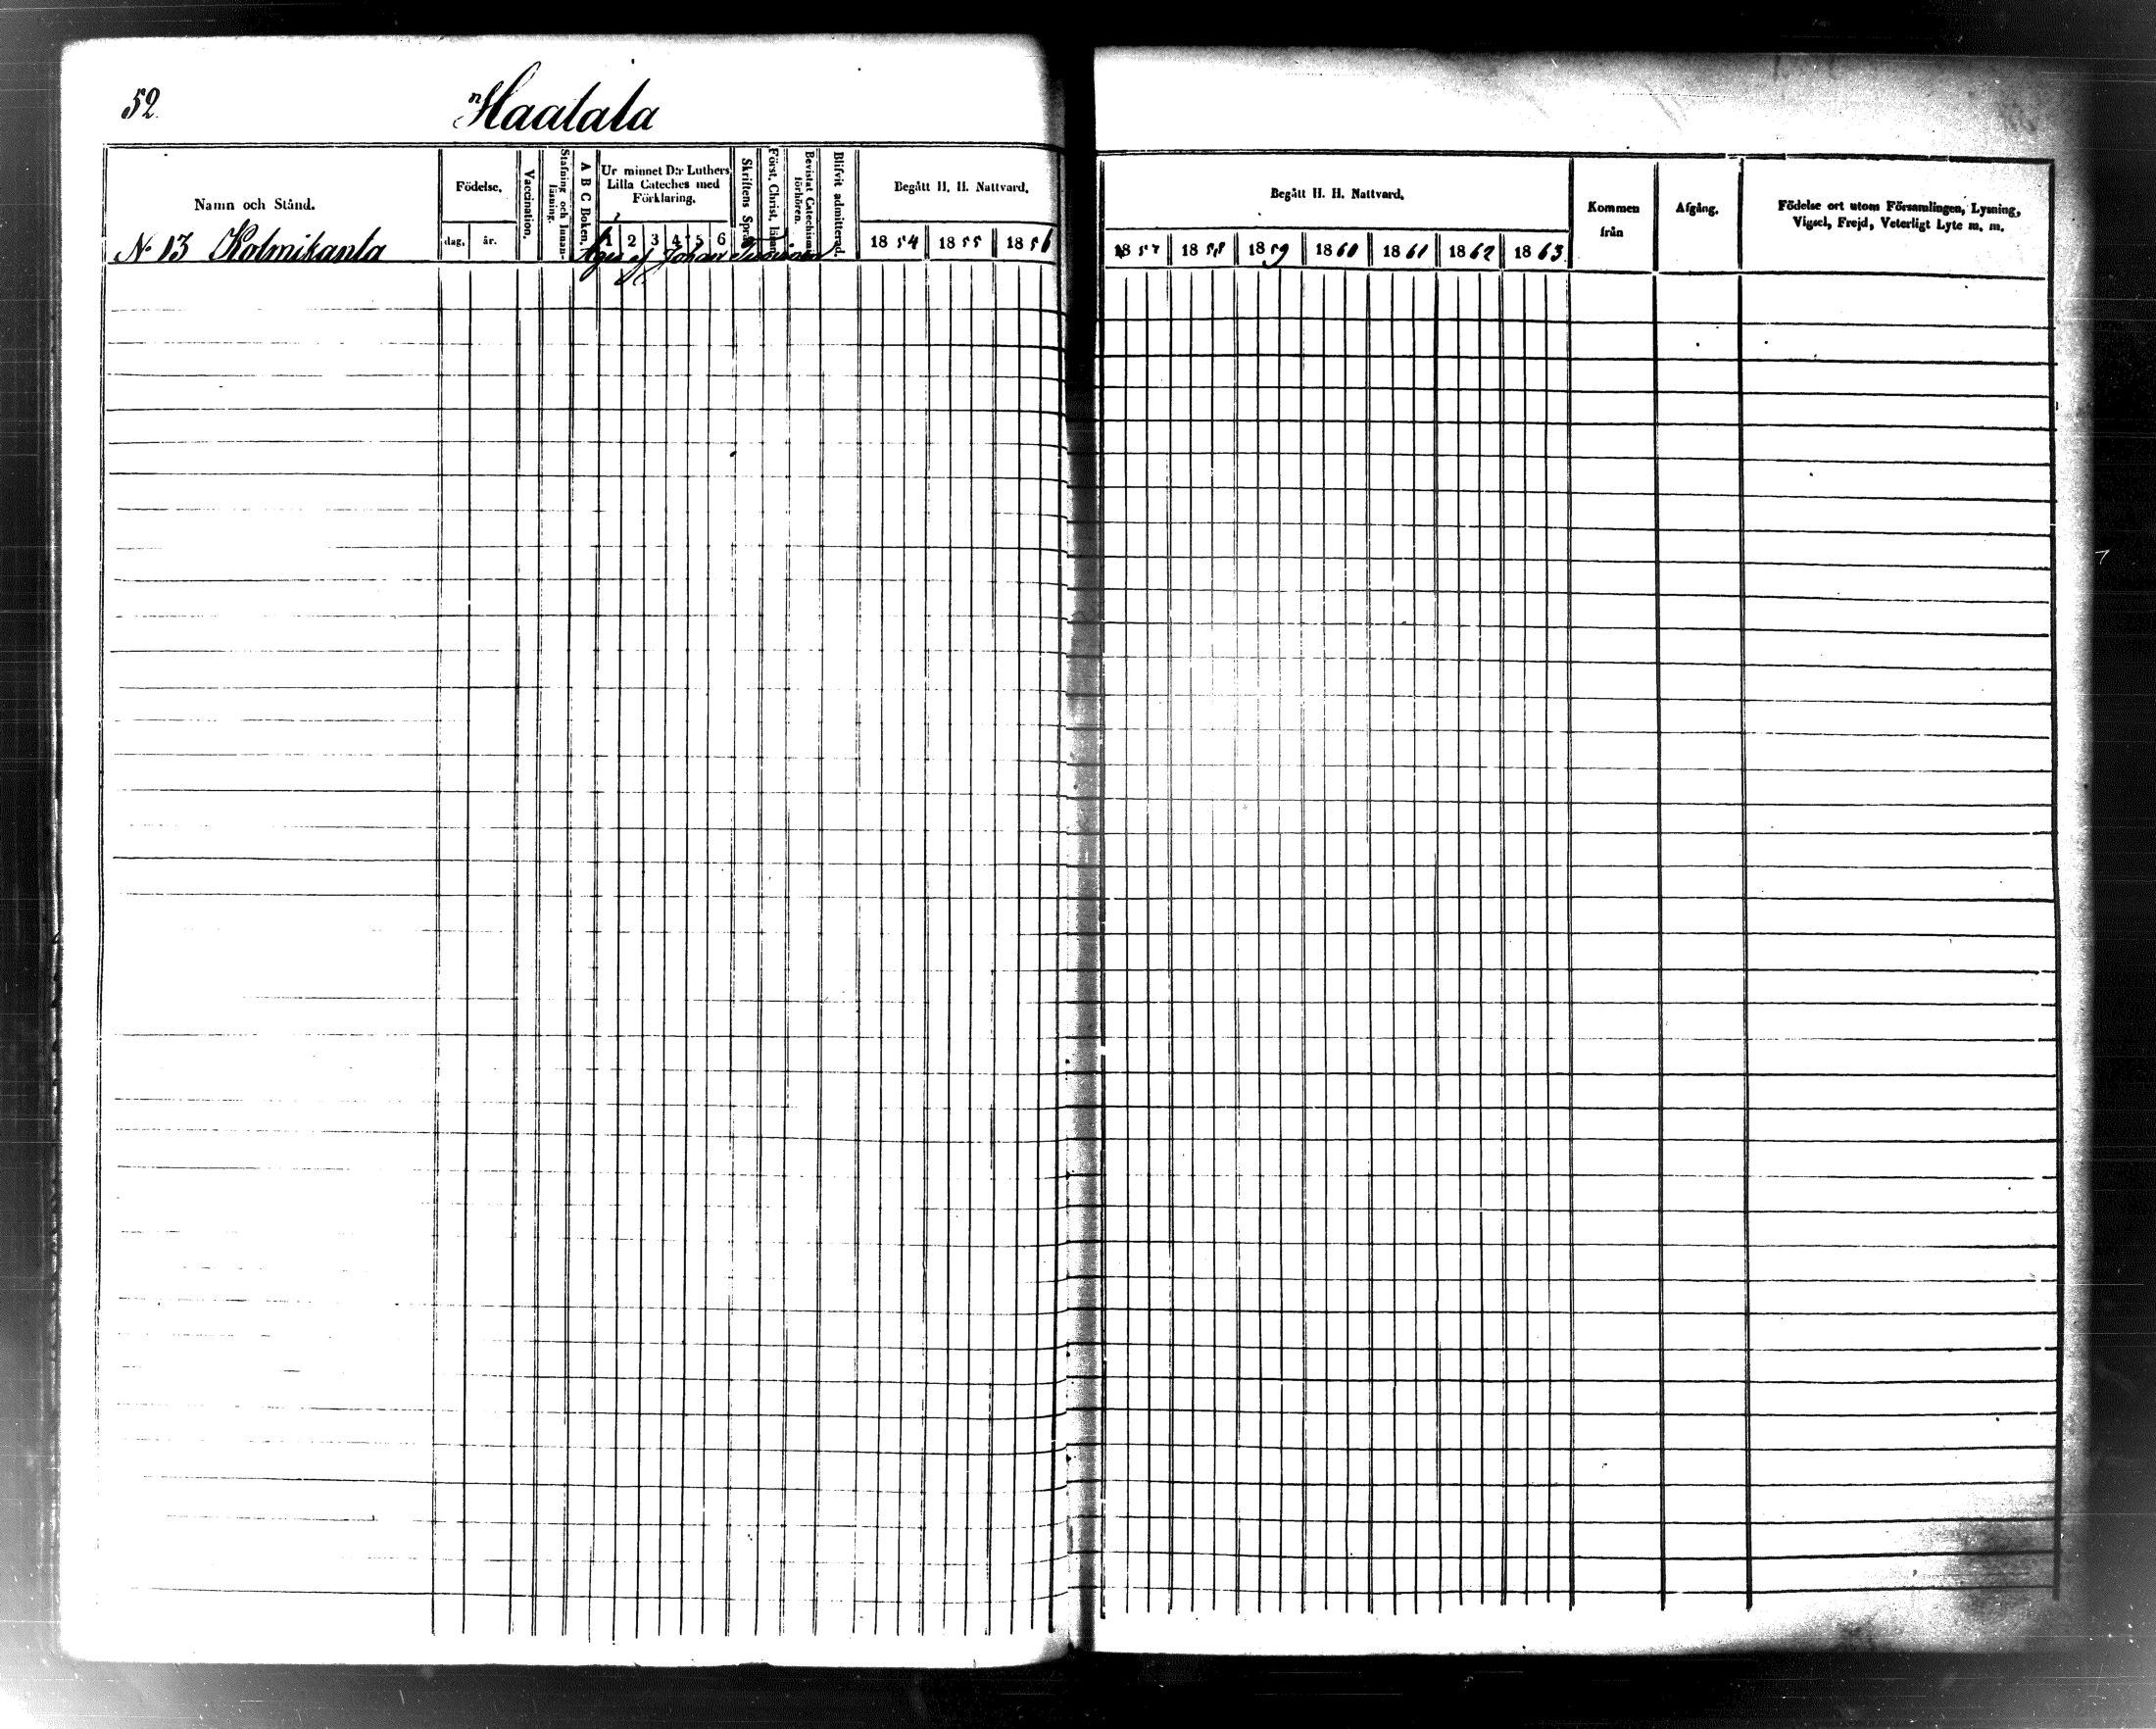 52.
Haatala
Namn och Stånd.
Födelse.
dag.
år.
Vaccination.
Stafning och Innan-
läsning.
A B C Boken.
Ur minnet D:r Luthers
Lilla Cateches med
Förklaring.
1 2 3 4 5 6
Skriftens Språk
Först. Christ. läran
Bevistat Catechismi
förhören.
Blifvit admitterad.
Begått H. H. Nattvard.
1854 1855 1856
Begått H. H. Nattvard.
1857 1858 1859 1860 1861 1862 1863
Kommen
från
Afgång.
Födelse ort utom Församlingen, Lysning,
Vigsel, Frejd, Veterligt Lyte m. m.
No 13 Kolmikanta
Äges af Johan